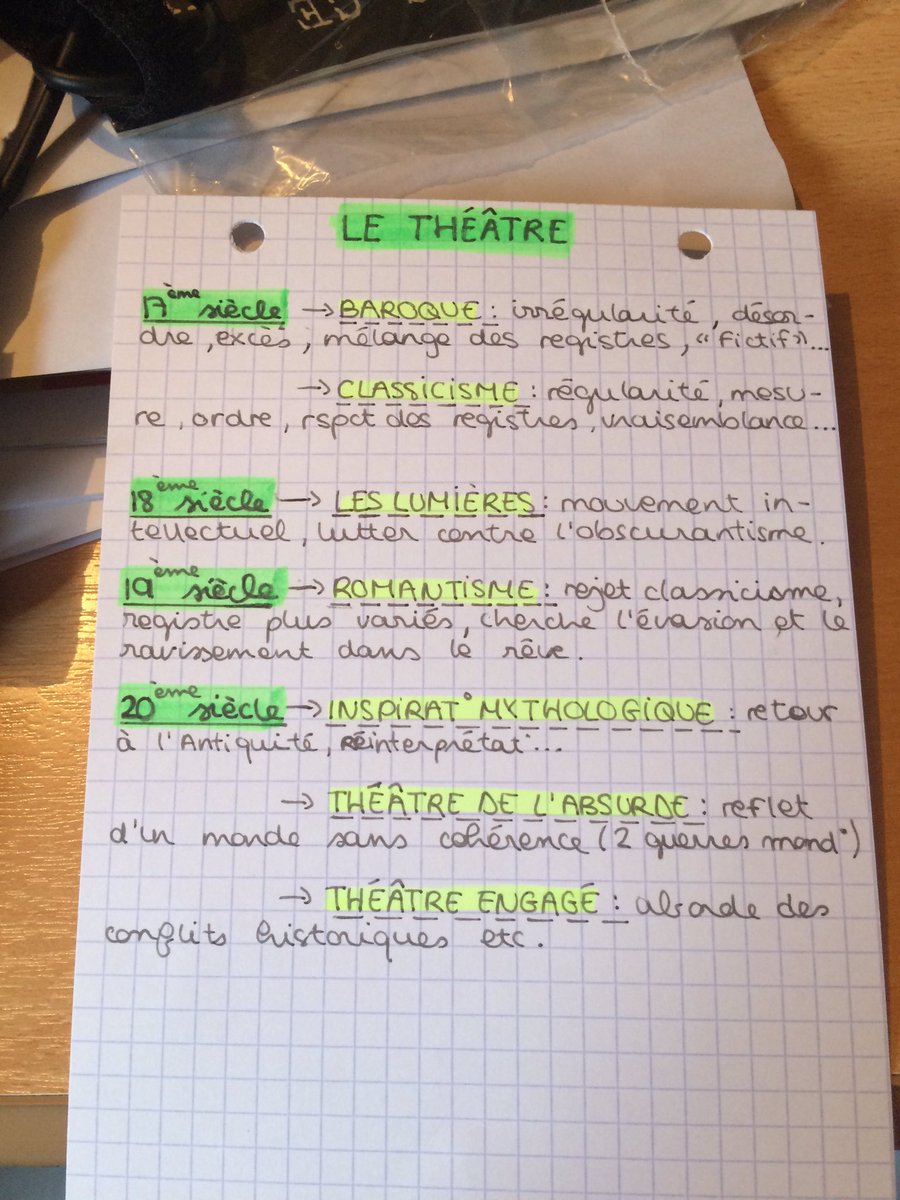 LE THÉÂTRE
17ème siècle → BAROQUE : irrégularité, désor-
dre, excès, mélange des registres, "fictif"...
→ CLASSICISME : régularité, mesu-
re, ordre, rspct des registres, vraisemblance...
18ème siècle → LES LUMIÈRES : mouvement in-
tellectuel, lutter contre l'obscurantisme.
19ème siècle → ROMANTISME : rejet classicisme,
registre plus variés, cherche l'évasion et le
ravissement dans le rêve.
20ème siècle → INSPIRAT° MYTHOLOGIQUE : retour
à l'Antiquité, Réinterprétat°...
→ THÉÂTRE DE L'ABSURDE : reflet
d'un monde sans cohérence (2 guerres mond°)
→ THÉÂTRE ENGAGÉ : aborde des
conflits historiques etc.